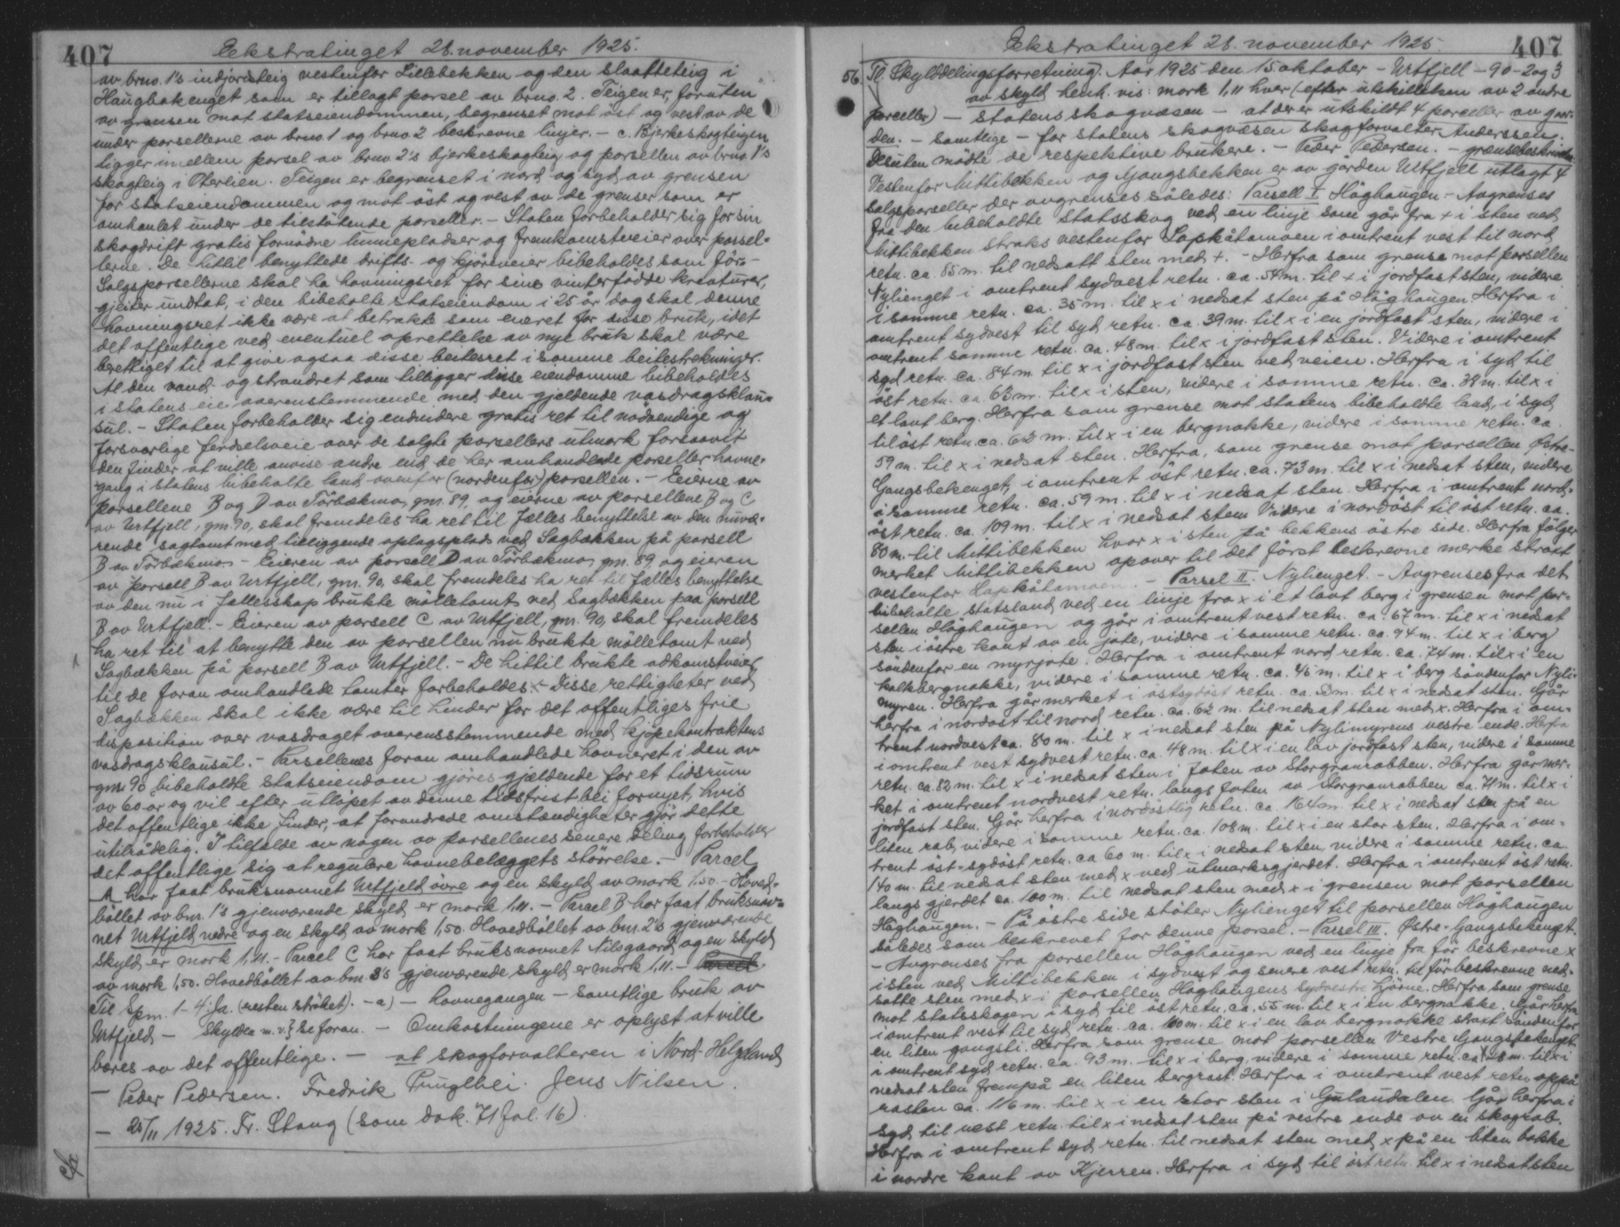 407
Ekstratinget 28. november 1925.
av brno. 1's indjordsteig vestenfor Lillebekken og den slaatteteig i
Haugbækenget som er tillagt porsel av brno. 2. Teigen er, foruten
av grænsen mot statseiendommen, begrenset mot öst og vest av de
under porsellerne av brno 1 og brno 2 beskrevne linjer. – c. Bjerkeskogteigen
ligger imellem porsel av brno 2's bjerkeskogteig og porsellen av brno 1's
skogteig i Oterlien. Teigen er begrenset i nord og syd av grensen
for statseiendommen og mot öst og vest av de grenser som er
omhanlet under de tilstötende porseller. – Staten forbeholder sig for sin
skogdrift gratis fornödne lunnepladser og fremkomstveier over porsel-
lerne. De hittil benyttede drifts- og kjöreveier bibeholdes som för. –
Salgsporsellerne skal ha havningsret for sine vinterfödde kreaturer,
gjeiter undtat, i den bibeholte statseiendom i 25 år dog skal denne
havningsret ikke være at betrakte som eneret for disse bruk, idet
det offentlige ved eventuel oprettelse av nye bruk skal være
berettiget til at give ogsaa disse beitesret i samme beitestrekninger.
Al den vand- og strandret som tilligger disse eiendomme bibeholdes
i statens eie overensstemmende med den gjeldende vasdragsklau-
sul. – Staten forbeholder sig endvidere gratis ret til nödvendige og
forsvarlige ferdselsveie over de solgte porsellers utmark forsaavit
den finder at ville anvise andre end de her omhandlede porseller havne-
gang i statens bibeholte land ovenfor (nordenfor) porsellen. – Eierne av
porsellene B og D av Törbækmo, gm. 89, og eierne av porsellene B og C
av Urtfjell, gm. 90, skal fremdeles ha ret til fælles benyttelse av den nuvæ-
rende sagtomt med tilliggende oplagsplads ved Sagbækken på porsell
B av Törbækmo. – Eieren av porsell D av Törbækmo, gm. 89, og eieren
av porsell B av Urtfjell, gm. 90, skal fremdeles ha ret til fælles benyttelse
av den nu i fællesskap brukte mölletomt ved Sagbækken paa porsell
B av Urtfjell. – Eieren av porsell C av Urtfjell, gm. 90, skal fremdeles
ha ret til at benytte den av porsellen nu brukte mölletomt ved
Sagbækken på porsell B av Urtfjell. – De hittil brukte adkomstveier
til de foran omhandlede tomter forbeholdes. – Disse rettigheter ved
Sagbækken skal ikke være til hinder for det offentliges frie
disposition over vasdraget overensstemmende med kjöpekontraktens
vasdragsklausul. – Parsellenes foran omhandlede havneret i den av
gm. 90 bibeholdte statseiendom gjöres gjældende for et tidsrum
av 60 år og vil efter utlöpet av denne tidsfrist bli fornyet, hvis
det offentlige ikke finder, at forandrede omstændigheter gjör dette
utilrådelig. I tilfælde av nogen av parsellenes senere deling forbeholder
det offentlige sig at regulere havnebelæggets störrelse. – Parcel
A har faat bruksnavnet Urtfjeld övre og en skyld av mark 1,50. – Hoved-
böllet av bnr. 1's gjenværende skyld er mark 1,11. – Parcel B har faat bruksnav-
net Urtfjeld nedre og en skyld av mark 1,50. Hovedböllet av bnr. 2's gjenværende
skyld er mark 1,11. – Parcel C har faat bruksnavnet Nilsgaard og en skyld
av mark 1,50. Hovedböllet av bnr 3's gjenværende skyld er mark 1,11. –
Til Spm. 1–4: Ja. (resten ströket). – a) – havnegangen – samtlige bruk av
Urtfjeld – Skylden m.v.} Se foran. – Omkostningene er oplyst at ville
bæres av det offentlige. – at skogforvalteren i Nord-Helgeland
– Peder Pedersen. Fredrik Jens Nilsen.
– 25/11 1925. Fr. Stang (som dok. 71 fol. 16).
407
Ekstratinget 28. november 1925.
56. Tl. Skylddelingsforretning. Aar 1925 den 15 oktober – Urtfjell – 90 – 2 og 3
av skyld henh. vis: mark 1,11 hver (efter utskillelsen av 2 andre
parceller) – Statens skogvæsen – at der er utskildt 4 parceller av går-
den. – Samtlige – for statens skogvæsen skogforvalter Anderssen.
Desuten mödte de respektive brukere. – Peder Pedersen. – grænsebeskrivelse
Vestenfor Mittibekken og Gangsbekken er av gården Urtfjell utlagt 4
salgsporseller der avgrenses således: Parsell I Håghaugen – Avgrenses
fra den bibeholdte statsskog ved en linje som går fra + i sten ved
Mittibekken straks vestenfor Lapkåtamoen i omtrent vest til nord
retn. ca. 85 m. til nedsatt sten med +. – Herfra som grense mot porsellen
Nylienget i omtrent sydvest retn. ca. 54 m. til + i jordfast sten, videre
i samme retn. ca. 35 m. til x i nedsat sten på Håghaugen. Herfra i
omtrent sydvest til syd retn. ca. 39 m. til x i en jordfast sten, videre i
omtrent samme retn. ca. 48 m. til x i jordfast sten. Videre i omtrent
syd retn. ca. 84 m. til x i jordfast sten ved veien. Herfra i syd til
öst retn. ca. 63 m. til x i sten, videre i samme retn. ca. 38 m. til x i
et lavt berg. Herfra som grense mot statens bibeholdte land, i syd
til öst retn. ca. 62 m. til x i en bergnakke, videre i samme retn. ca.
59 m. til x i nedsat sten. Herfra, som grense mot porsellen Östre-
Gangsbekenget, i omtrent öst retn. ca. 73 m. til x i nedsat sten, videre
i samme retn. ca. 59 m. til x i nedsat sten. Herfra i omtrent nord-
öst retn. ca. 109 m. til x i nedsat sten. Videre i nordöst til öst retn. ca.
80 m. til Mittibekken hvor x i sten på bekkens östre side. Herfra fölger
merket Mittibekken opover til det först beskrevne merke straxt
vestenfor Lapkåtamoen. – Parsel II. Nylienget. – Avgrenses fra det
bibeholtte statsland ved en linje fra x i et lavt berg i grensen mot por-
sellen Håghaugen og gör i omtrent vest retn. ca. 67 m. til x i nedsat
sten i östre kant av en jote, videre i samme retn. ca. 94 m. til x i berg
söndenfor en myrjote. Herfra i omtrent nord retn. ca. 74 m. til x i en
kalkbergnakke, videre i samme retn. ca. 45 m. til x i berg söndenfor Nyli-
myren. Herfra går merket i östsydöst retn. ca. m. til x i nedsat sten. Går
herfra i nordost til nord retn. ca. 62 m. til nedsat sten med x. Herfra i om-
trent nordvest ca. 80 m. til x i nedsat sten på Nylimyrens vestre ende. Herfra
i omtrent vest sydvest retn. ca. 48 m. til x i en lav jordfast sten, videre i samme
retn. ca. 82 m. til x i nedsat sten i foten av Storgranrabben. Herfra går mer-
ket i omtrent nordvest retn. langs foten av Storgranrabben ca. 71 m. til x i
jordfast sten. Går herfra i nordöstlig retn. ca. 164 m. til x i nedsat sten på en
liten rab, videre i samme retn. ca. 108 m. til x i en stor sten. Herfra i om-
trent öst-sydöst retn. ca. 60 m. til x i nedsat sten, videre i samme retn. ca.
140 m. til nedsat sten med x ved utmarksgjerdet. Herfra i omtrent öst retn.
langs gjerdet ca. 100 m. til nedsat sten med x i grensen mot porsellen
Håghaugen. – På östre side stöter Nylienget til porsellen Håghaugen
således som beskrevet for denne porsel. – Parsel III. Östre-Gangsbekenget.
– Avgrenses fra porsellen Håghaugen ved en linje fra för beskrevne x
i sten ved Mittibekken i sydvest og senere vest retn. til förbeskrevne ned-
satte sten med x i porsellen Håghaugens sydvestre hjörne. Herfra som grense
mot statsskogen i syd til öst retn. ca. 55 m. til x i en bergnakke. Går herfra
i omtrent vest til syd retn. ca. 100 m. til x i en lav bergnakke straxt söndenfor
en liten gangsti. Herfra som grense mot porsellen Vestre Gangsbekenget
i omtrent syd retn. ca. 93 m. til x i berg, videre i samme retn. ca. m. til x i
nedsat sten frempå en liten bergrast. Herfra i omtrent vest retn. oppå
rasten ca. 116 m. til x i en stor sten i Gulaudalen. Går herfra i
syd til vest retn. til x i nedsat sten på vestre ende av en skograb.
Herfra i omtrent syd retn. til nedsat sten med x på en liten bakke
i nordre kant av Kjerren. Herfra i syd til öst retn. til x i nedsat sten